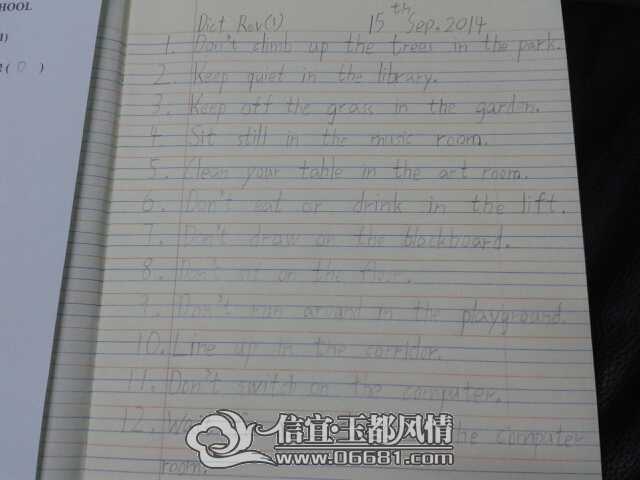 HOOL
Dict Rev(1) 15th Sep. 2014
1. Don't climb up the trees in the park.
2. Keep quiet in the library.
3. Keep off the grass in the garden.
4. Sit still in the music room.
5. Clean your table in the art room.
6. Don't eat or drink in the lift.
7. Don't draw on the blackboard.
8. Don't sit on the floor.
9. Don't run around in the playground.
10. Line up in the corridor.
11. Don't switch on the computer.
12. the computer
room.
信宜·玉都风情
www.06681.com